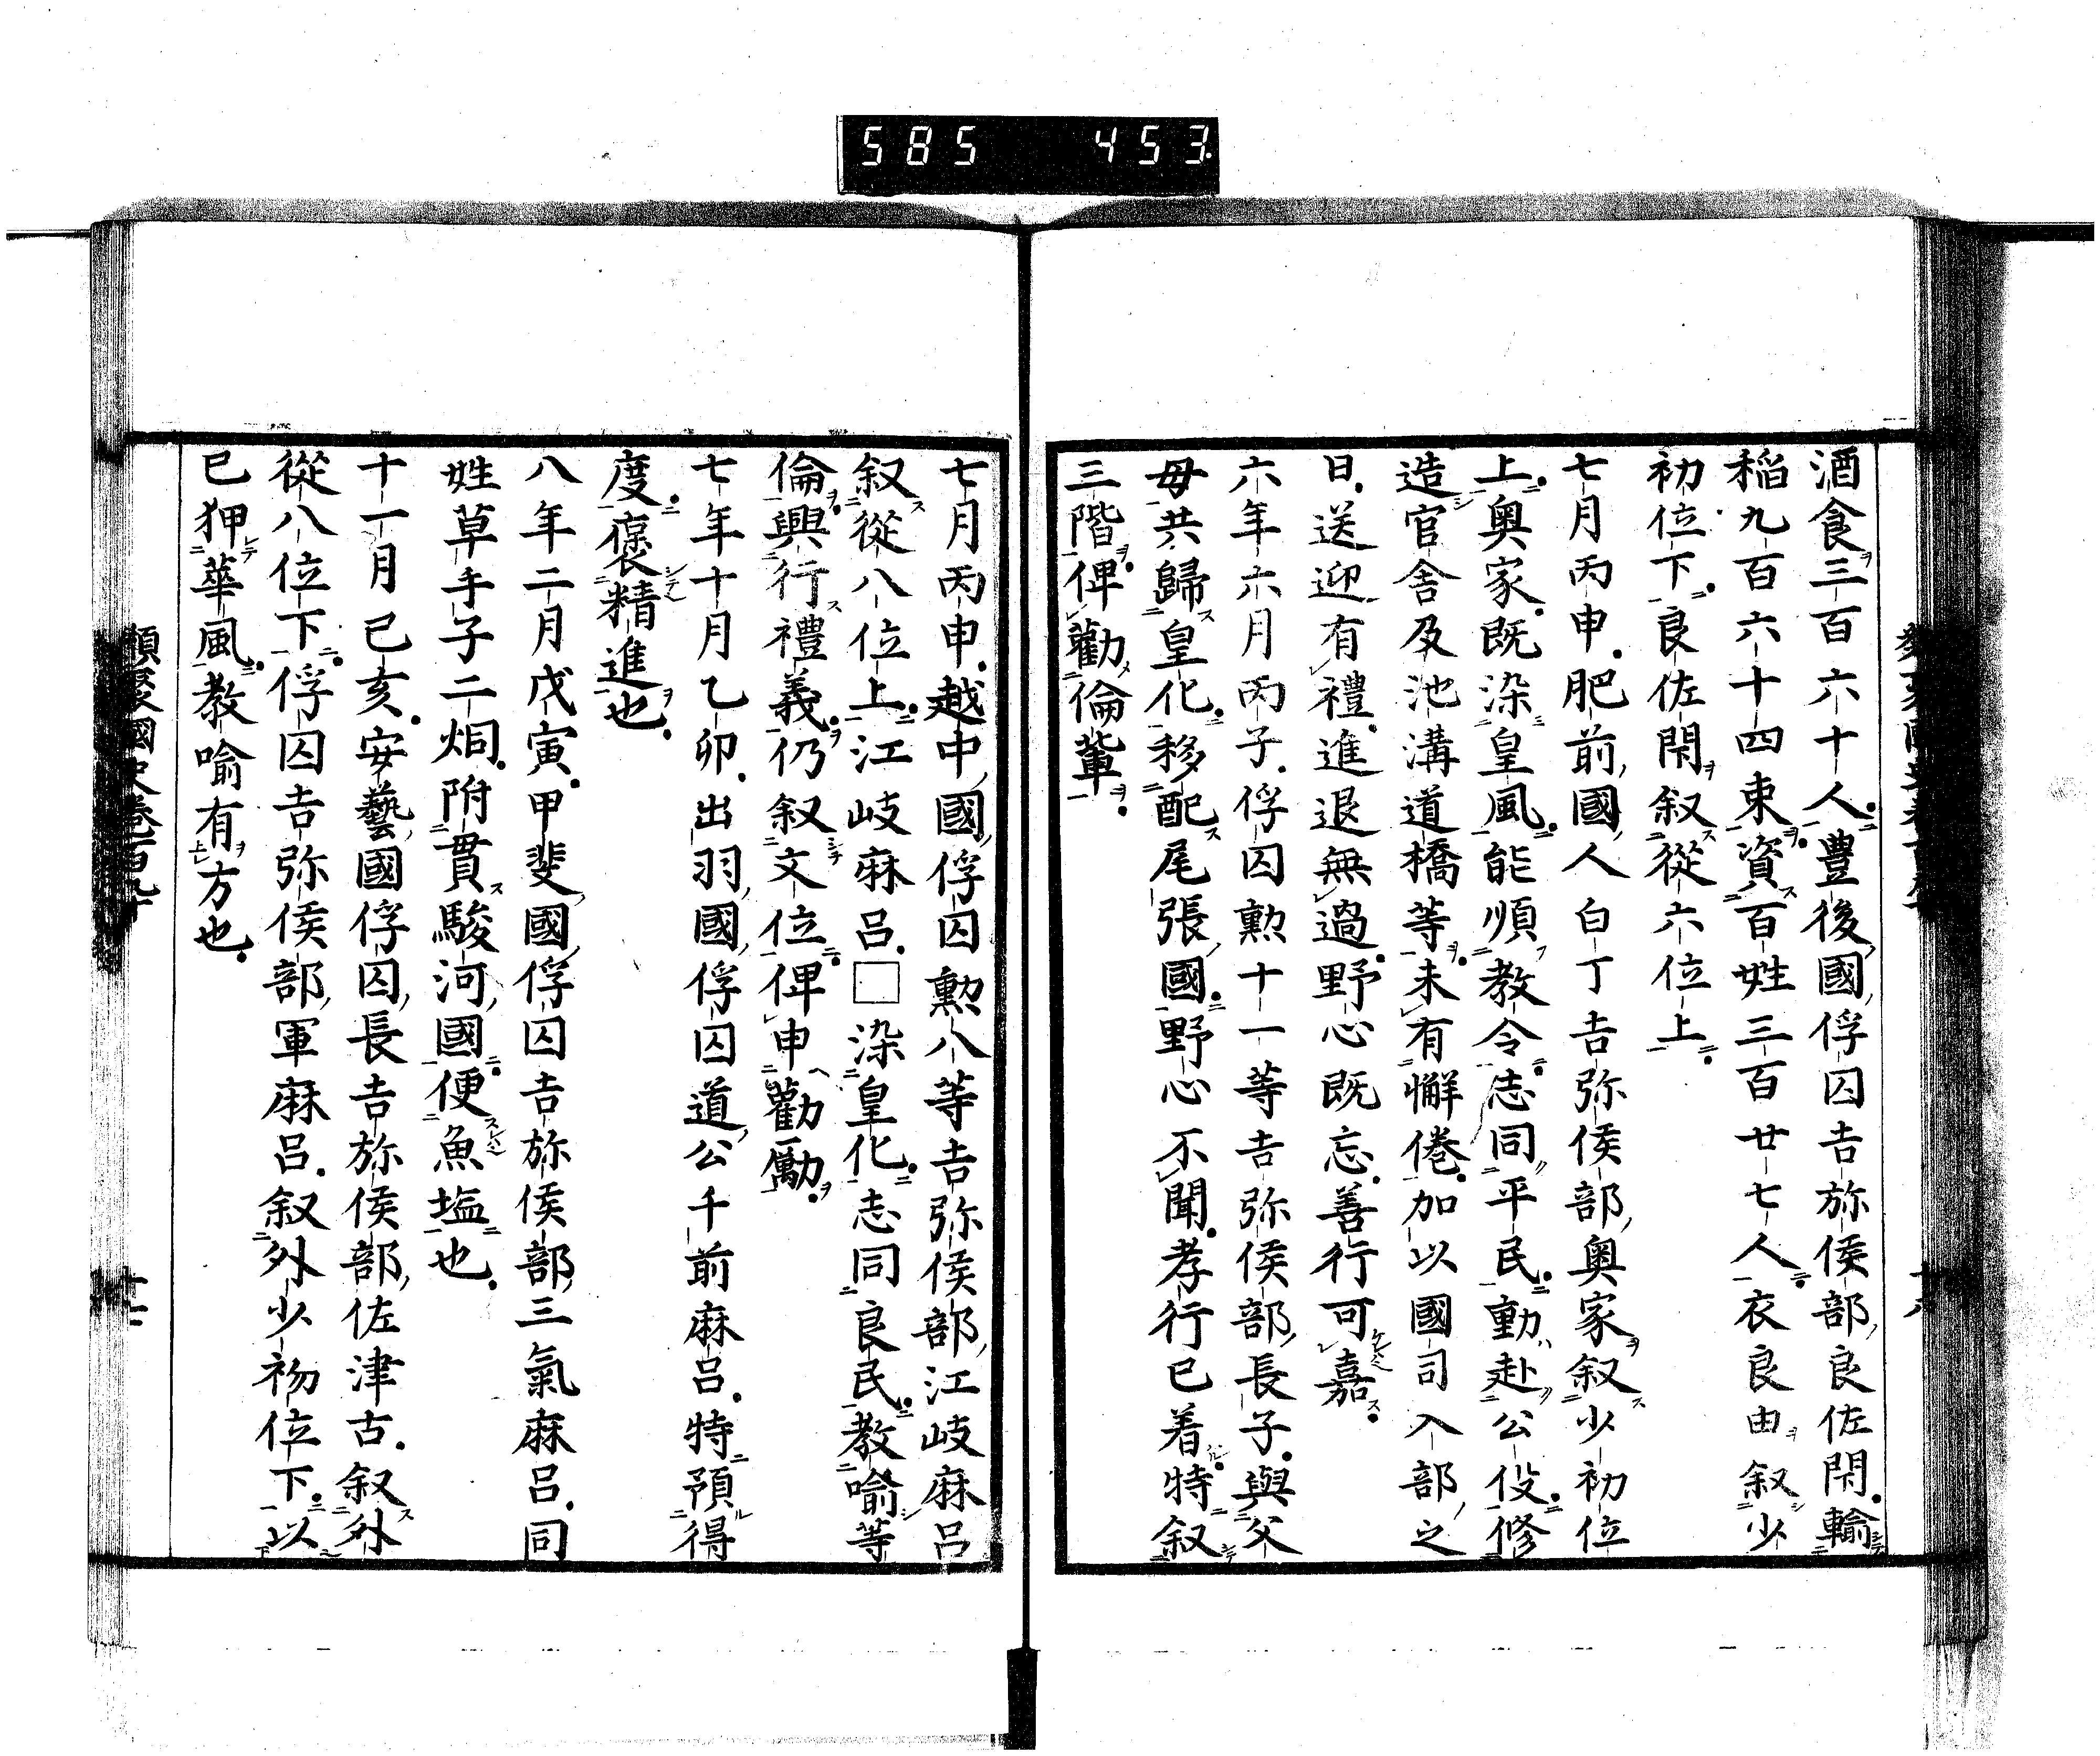 585 453
酒食三百六十人豊後國俘囚吉弥侯部良佐閇輸
稲九百六十四束資百姓三百廿七人衣良由叙少
初位下良佐閇叙從六位上
七月丙申肥前國人白丁吉弥侯部奥家叙少初位
上奥家既染皇風能順教令志同平民動赴公役修
造官舎及池溝道橋等未有懈倦加以國司入部之
日送迎有禮進退無過野心既忘善行可嘉
六年六月丙子俘囚勲十一等吉弥侯部長子與父
母共歸皇化移配尾張國野心不聞孝行已着特叙
三階俾勸倫輩
七月丙申越中國俘囚勲八等吉弥侯部江岐麻呂
叙從八位上江岐麻呂□染皇化志同良民教喻等
倫興行禮義仍叙文位俾申勸勵
七年十月乙卯出羽國俘囚道公千前麻呂特預得
度褒精進也
八年二月戊寅甲斐國俘囚吉弥侯部三氣麻呂同
姓草手子二烟附貫駿河國便魚塩也
十一月己亥安藝國俘囚長吉弥侯部佐津古叙外
從八位下俘囚吉弥侯部軍麻呂叙外少初位下以
已狎華風教喻有方也
類聚國史巻百九十